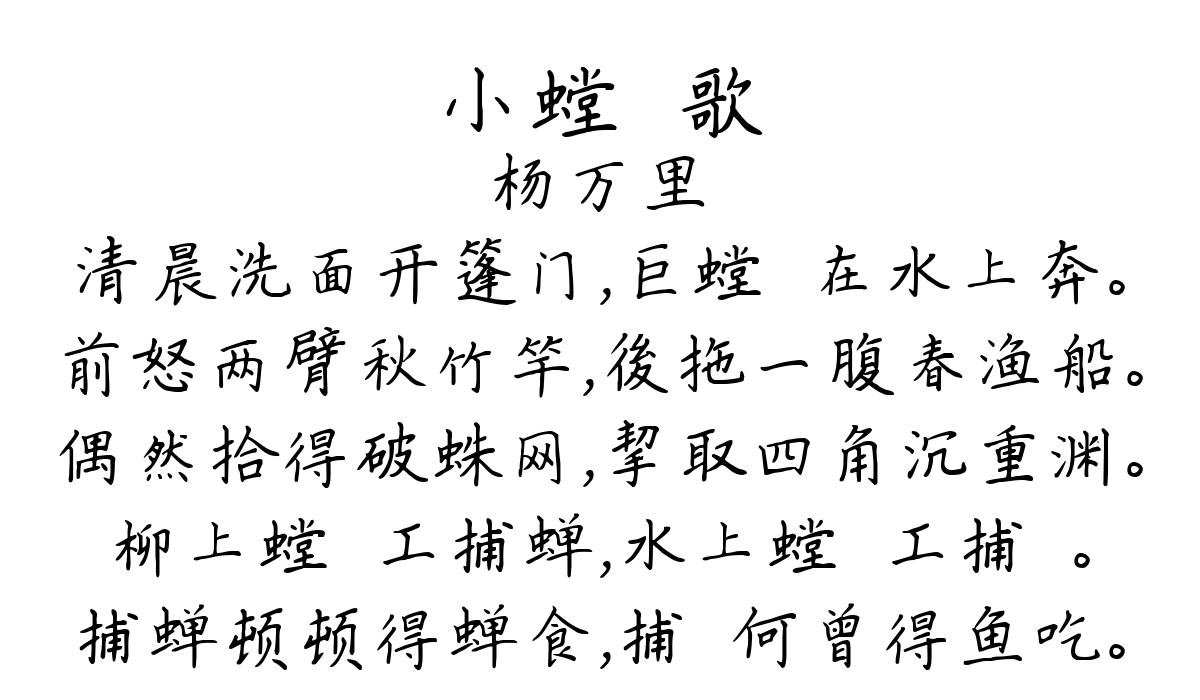 小螳 歌
杨万里
清晨洗面开篷门,巨螳 在水上奔。
前怒两臂秋竹竿,後拖一腹春渔船。
偶然拾得破蛛网,挈取四角沉重渊。
柳上螳 工捕蝉,水上螳 工捕 。
捕蝉顿顿得蝉食,捕 何曾得鱼吃。